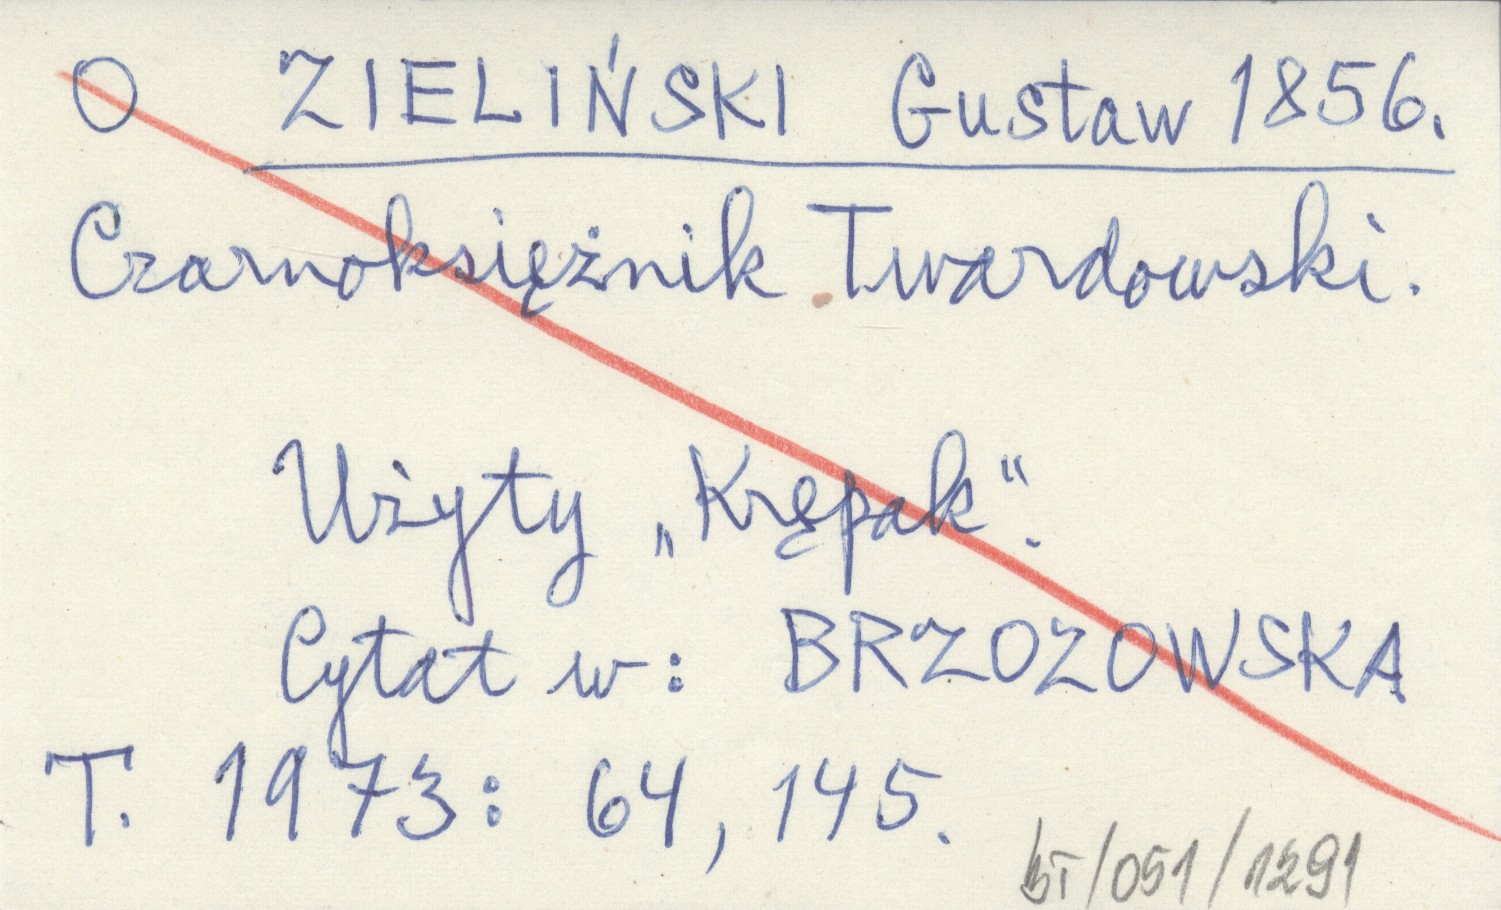 O ZIELIŃSKI Gustaw 1856.
Czarnoksiężnik Twardowski.
Użyty „Krępak“.
Cytat w: BRZOZOWSKA
T. 1973: 64, 145.
/051/1291